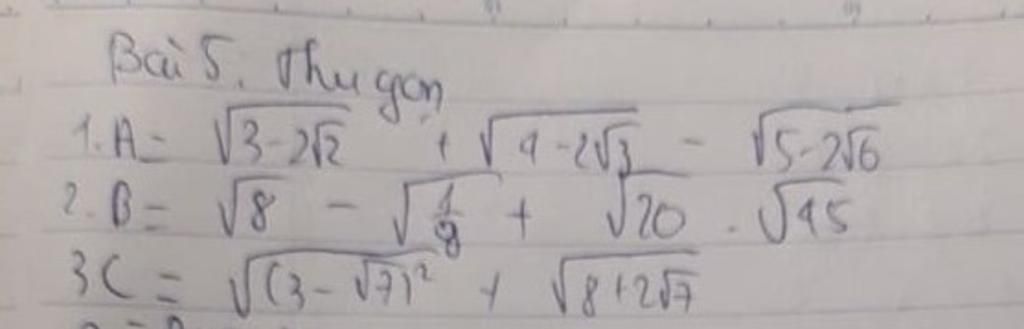 Bài 5. Thu gọn
1. A = √(3-2√2) + √(4-2√3) - √(5-2√6)
2. B = √8 - √(1/8) + √20 . √45
3 C = √((3-√7)²) + √(8+2√7)